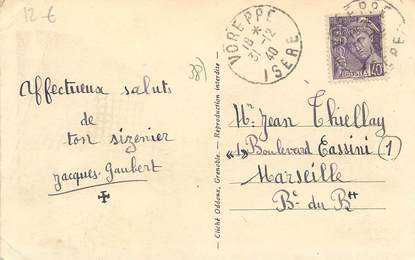 12-€
38)
VOREPPE
18 *
31-12
40
ISERE
40
Affectueux saluts
de
ton sizenier
Jacques Gaubert
Cliché Oddoux, Grenoble. — Reproduction interdite —
Mr Jean Thiellay
Boulevard Cassini (1)
Marseille
B. du Rh